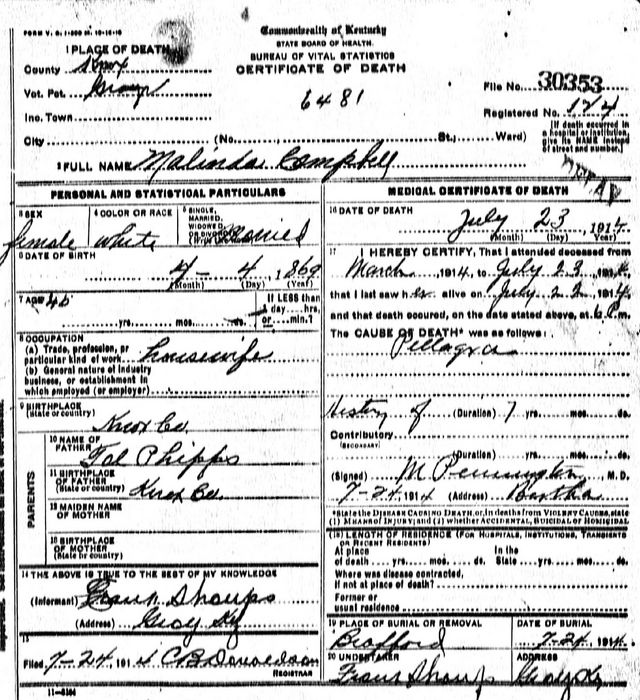 FORM V. S. 1-
Commonwealth of Kentucky
STATE BOARD OF HEALTH.
BUREAU OF VITAL STATISTICS
CERTIFICATE OF DEATH
6481
1 PLACE OF DEATH
County Knox
Vot. Pct.
Inc. Town
City (No. St.; Ward)
File No. 30353
Registered No. 124
[If death occurred in a hospital or institution, give its NAME instead of street and number.]
2 FULL NAME Malinda Campbell
PERSONAL AND STATISTICAL PARTICULARS
3 SEX female
4 COLOR OR RACE white
5 SINGLE, MARRIED, WIDOWED OR DIVORCED Married
6 DATE OF BIRTH
4 - 4, 1869
(Month) (Day) (Year)
7 AGE 45
yrs. mos. ds.
If LESS than 1 day....hrs. or....min.?
8 OCCUPATION
(a) Trade, profession, or particular kind of work housewife
(b) General nature of industry business, or establishment in which employed (or employer)
9 BIRTHPLACE
(State or country) Knox Co.
PARENTS
10 NAME OF FATHER Phipps
11 BIRTHPLACE OF FATHER
(State or country) Knox Co
12 MAIDEN NAME OF MOTHER
13 BIRTHPLACE OF MOTHER
(State or country)
14 THE ABOVE IS TRUE TO THE BEST OF MY KNOWLEDGE
(Informant)
(Address) Ky
15
Filed 7-24, 1914 C.B. Donaldson
REGISTRAR
MEDICAL CERTIFICATE OF DEATH
16 DATE OF DEATH
July 23, 1914
(Month) (Day) (Year)
17 I HEREBY CERTIFY, That I attended deceased from
March, 1914, to July 23, 1914,
that I last saw her alive on July 22, 1914,
and that death occured, on the date stated above, at 6 P.m.
The CAUSE OF DEATH* was as follows:
Pellagra
history of (Duration) 7 yrs. mos. ds.
Contributory
(SECONDARY)
(Duration) yrs. mos. ds.
(Signed) M Pennington, M. D.
7-24, 1914 (Address) Bertha
*State the DISEASE CAUSING DEATH, or, in deaths from VIOLENT CAUSES, state (1) MEANS OF INJURY; and (2) whether ACCIDENTAL, SUICIDAL or HOMICIDAL
18 LENGTH OF RESIDENCE (FOR HOSPITALS, INSTITUTIONS, TRANSIENTS OR RECENT RESIDENTS)
At place of death.....yrs.....mos.....ds. In the State.....yrs.....mos.....ds.
Where was disease contracted, if not at place of death?
Former or usual residence
19 PLACE OF BURIAL OR REMOVAL
Brafford
DATE OF BURIAL
7-24, 1914
20 UNDERTAKER
ADDRESS
11-8184